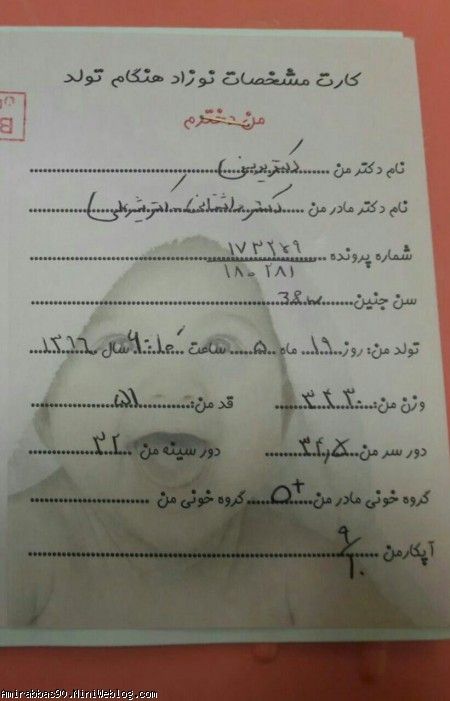 کارت مشخصات نوزاد هنگام تولد
من دخترم
نام دکتر من ........ دکتر
نام دکتر مادر من ........ دکتر
شماره پرونده ........ ۱۷۳۲۷۹
۱۸۰۲۸۱
سن جنین ........ 38w
تولد من: روز ۱۹ ماه ۵ ساعت سال ۱۳۹۶
وزن من: ۳۴۳۰ قد من: ۵۱
دور سر من ۳۴,۵ دور سینه من ۳۲
گروه خونی مادر من O+ گروه خونی من
آپگار من ۹/۱۰
Amirabbas90.NiniWeblog.com